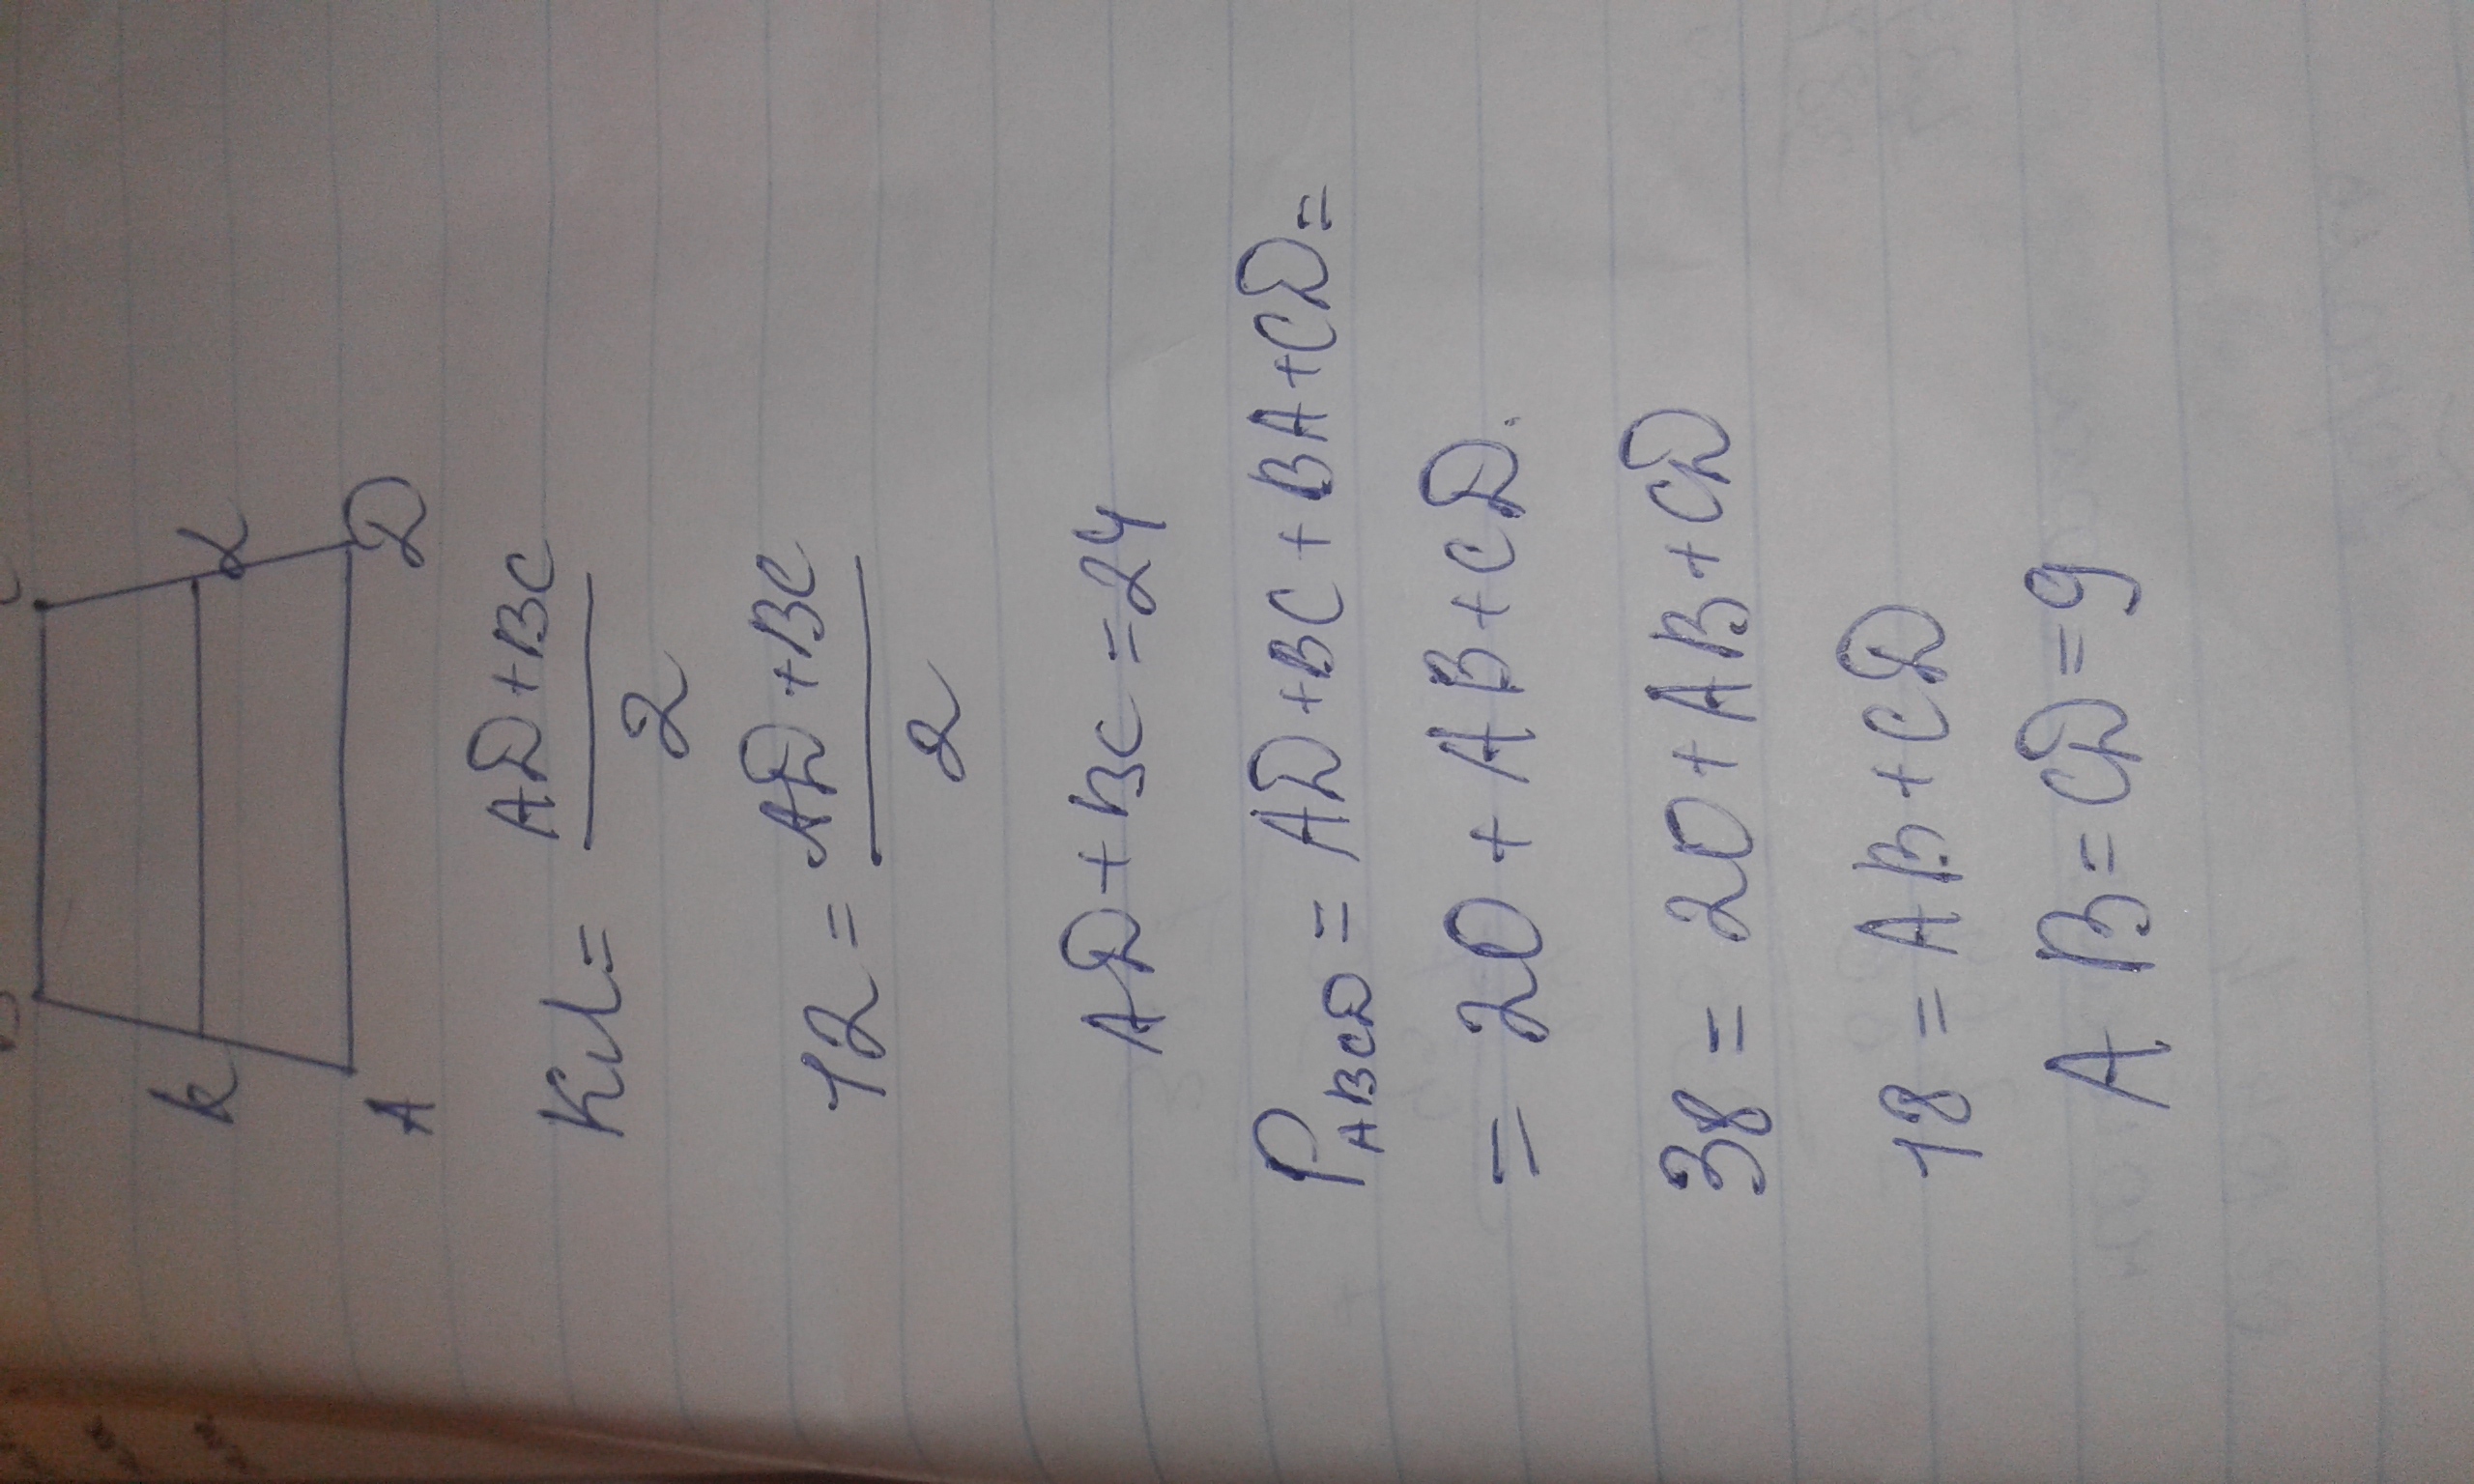 K L
A D
KL = AD+BC
2
12 = AD+BC
2
AD+BC=24
PABCD = AD+BC+BA+CD=
= 20 + AB+CD.
38 = 20+AB+CD
18 = AB+CD
AB=CD=9